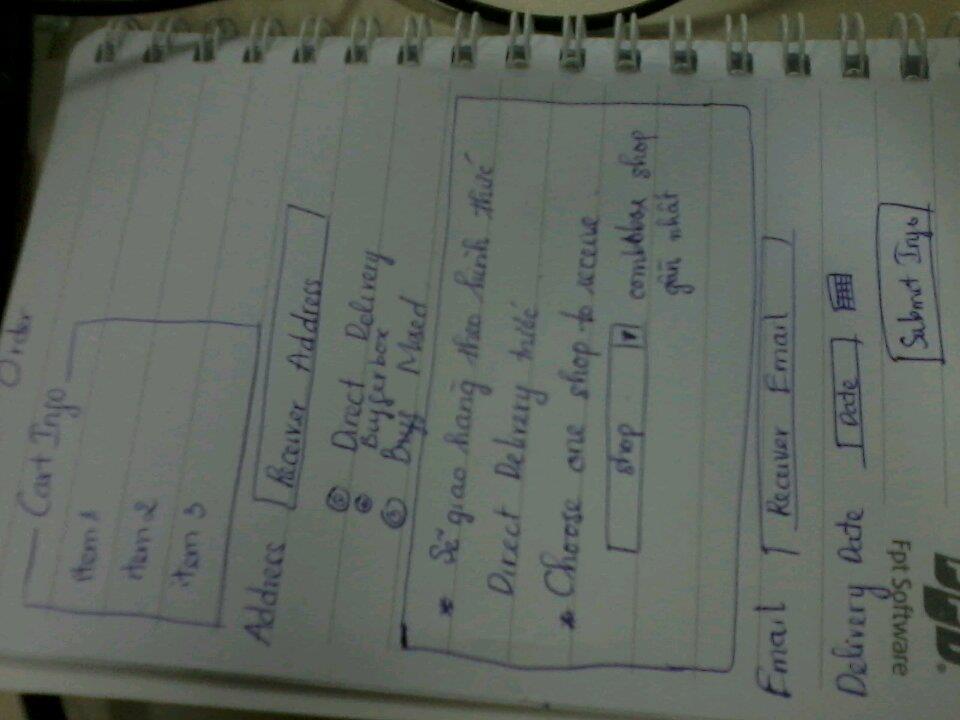 Order
Cart Info
item 1
item 2
item 3
Address
Receiver Address
Direct Delivery
Bufferbox
Mixed
* Sẽ giao hàng theo hình thức
Direct Delivery trước
* Choose one shop to receive
shop
combobox shop
gần nhất
Email
Receiver Email
Delivery Date
Date
Submit Info
Fpt Software